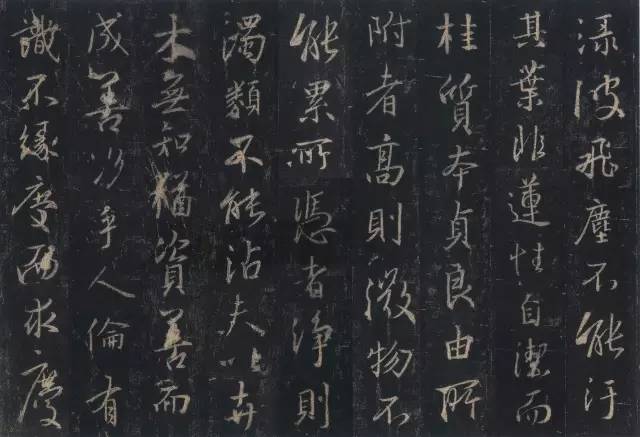 淥波飛塵不能汙
其葉非蓮性自潔而
桂質本貞良由所
附者高則微物不
能累所憑者淨則
濁類不能沾夫以卉
木無知猶資善而
成善况乎人倫有
識不緣慶而求慶